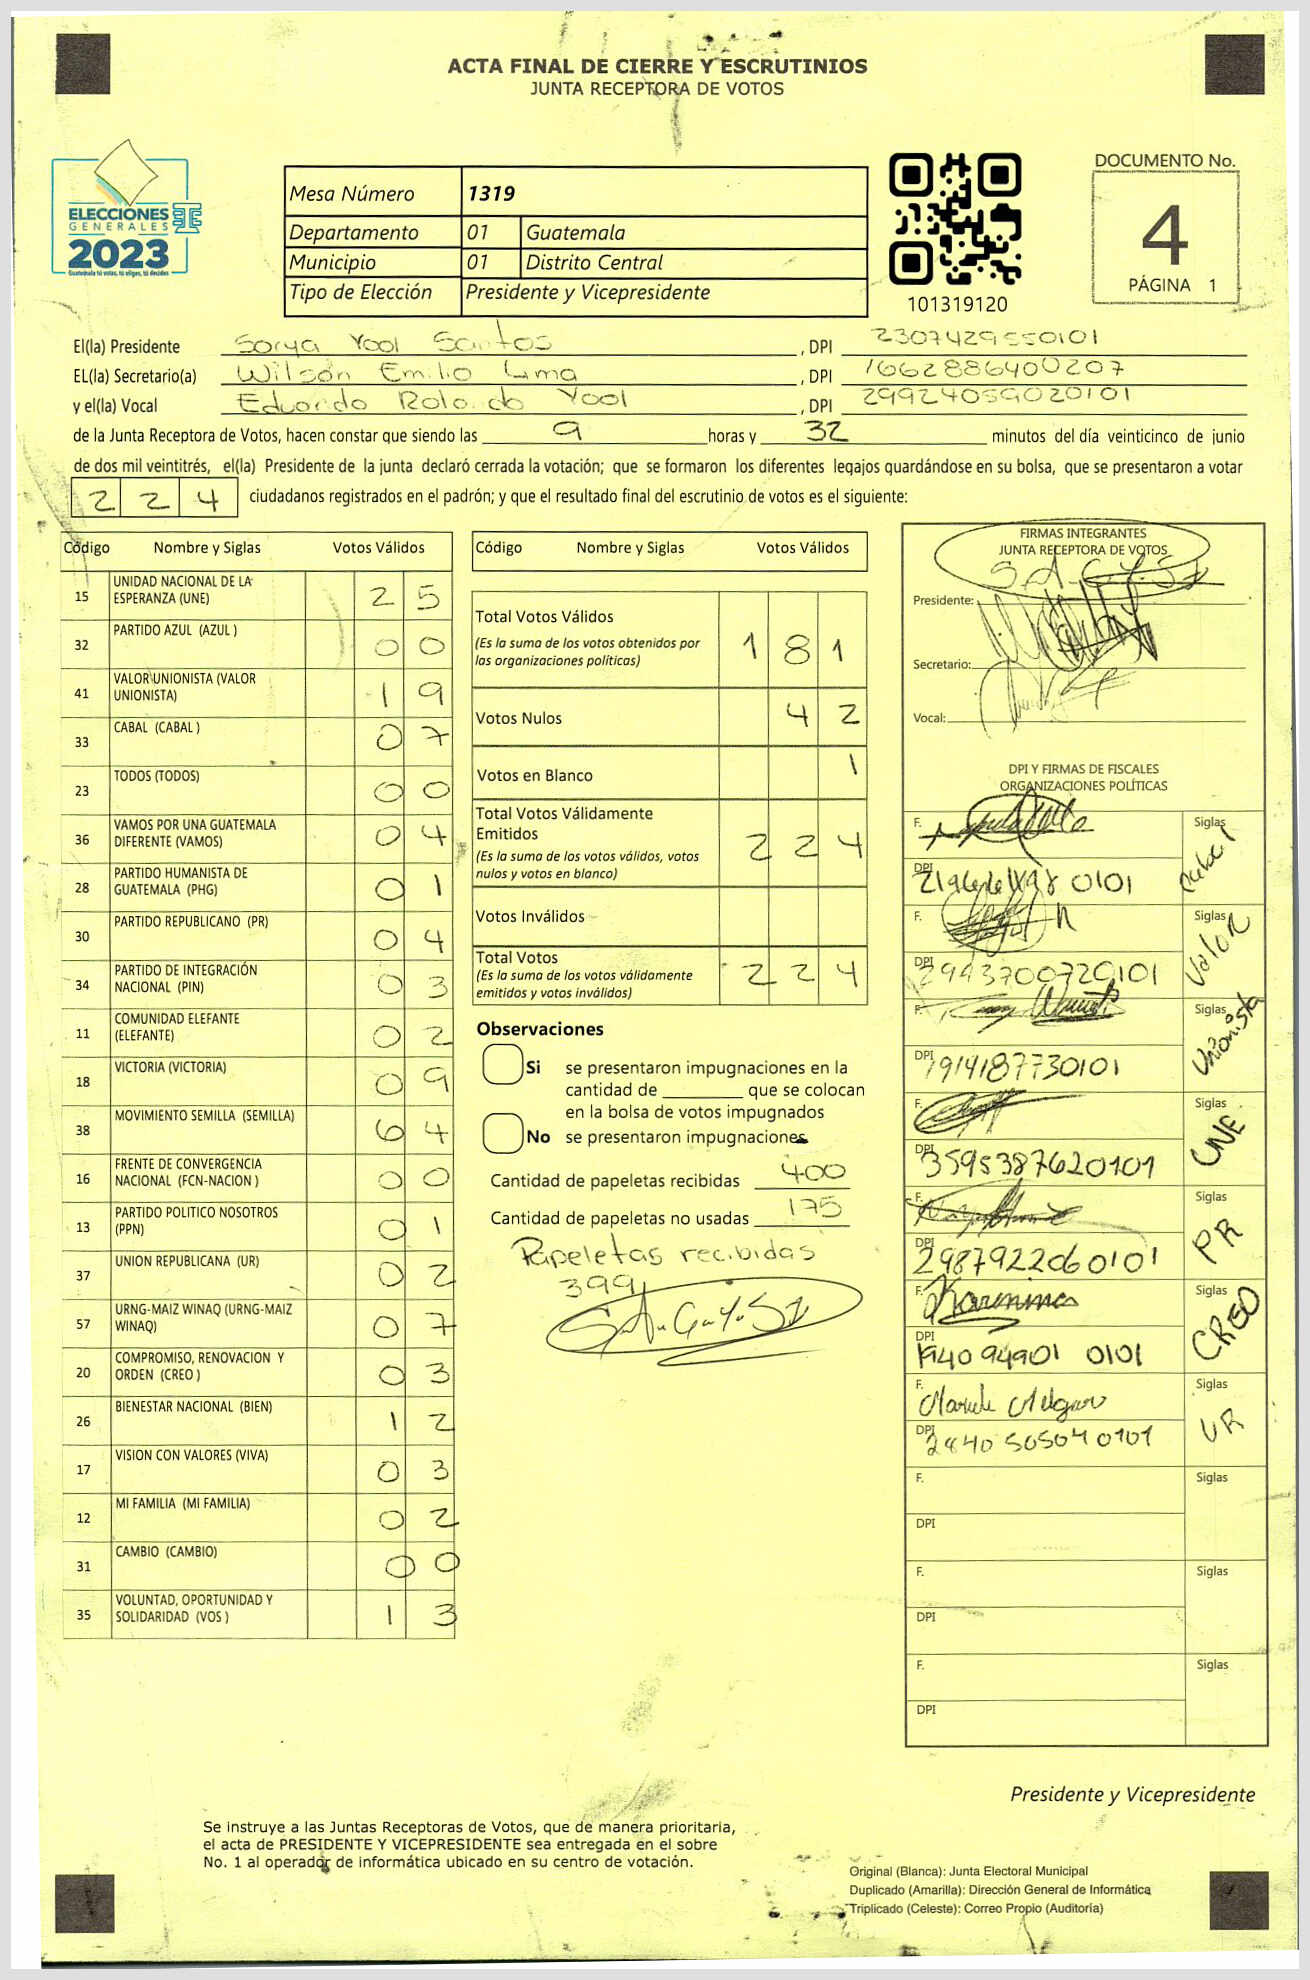 ACTA FINAL DE CIERRE Y ESCRUTINIOS
JUNTA RECEPTORA DE VOTOS
ELECCIONES
GENERALES
2023
Guatemala tú votas, tú eliges, tú decides
Mesa Número 1319
Departamento 01 Guatemala
Municipio 01 Distrito Central
Tipo de Elección Presidente y Vicepresidente
101319120
DOCUMENTO No.
4
PÁGINA 1
El(la) Presidente Sorya Yool Santos, DPI 2307429550101
EL(la) Secretario(a) Wilson Emilio Lima, DPI 1662886400207
y el(la) Vocal Eduardo Rolando Yool, DPI 29924059020101
de la Junta Receptora de Votos, hacen constar que siendo las 9 horas y 32 minutos del día veinticinco de junio
de dos mil veintitrés, el(la) Presidente de la junta declaró cerrada la votación; que se formaron los diferentes legajos guardándose en su bolsa, que se presentaron a votar
224 ciudadanos registrados en el padrón; y que el resultado final del escrutinio de votos es el siguiente:
Código Nombre y Siglas Votos Válidos
15 UNIDAD NACIONAL DE LA ESPERANZA (UNE) 2 5
32 PARTIDO AZUL (AZUL ) 0 0
41 VALOR UNIONISTA (VALOR UNIONISTA) 1 9
33 CABAL (CABAL ) 0 7
23 TODOS (TODOS) 0 0
36 VAMOS POR UNA GUATEMALA DIFERENTE (VAMOS) 0 4
28 PARTIDO HUMANISTA DE GUATEMALA (PHG) 0 1
30 PARTIDO REPUBLICANO (PR) 0 4
34 PARTIDO DE INTEGRACIÓN NACIONAL (PIN) 0 3
11 COMUNIDAD ELEFANTE (ELEFANTE) 0 2
18 VICTORIA (VICTORIA) 0 9
38 MOVIMIENTO SEMILLA (SEMILLA) 6 4
16 FRENTE DE CONVERGENCIA NACIONAL (FCN-NACION ) 0 0
13 PARTIDO POLITICO NOSOTROS (PPN) 0 1
37 UNION REPUBLICANA (UR) 0 2
57 URNG-MAIZ WINAQ (URNG-MAIZ WINAQ) 0 7
20 COMPROMISO, RENOVACION Y ORDEN (CREO ) 0 3
26 BIENESTAR NACIONAL (BIEN) 1 2
17 VISION CON VALORES (VIVA) 0 3
12 MI FAMILIA (MI FAMILIA) 0 2
31 CAMBIO (CAMBIO) 0 0
35 VOLUNTAD, OPORTUNIDAD Y SOLIDARIDAD (VOS ) 1 3
Código Nombre y Siglas Votos Válidos
Total Votos Válidos 1 8 1
(Es la suma de los votos obtenidos por
las organizaciones políticas)
Votos Nulos 4 2
Votos en Blanco 1
Total Votos Válidamente
Emitidos 2 2 4
(Es la suma de los votos válidos, votos
nulos y votos en blanco)
Votos Inválidos
Total Votos 2 2 4
(Es la suma de los votos válidamente
emitidos y votos inválidos)
Observaciones
Si se presentaron impugnaciones en la
cantidad de ________ que se colocan
en la bolsa de votos impugnados
No se presentaron impugnaciones
Cantidad de papeletas recibidas 400
Cantidad de papeletas no usadas 175
Papeletas recibidas
399
FIRMAS INTEGRANTES
JUNTA RECEPTORA DE VOTOS
Presidente:
Secretario:
Vocal:
DPI Y FIRMAS DE FISCALES
ORGANIZACIONES POLÍTICAS
F. Siglas
DPI
F. Siglas Valor
DPI 2993700720101
F. Siglas Unionista
DPI 1914187730101
F. Siglas UNE
DPI 3595387620101
F. Siglas PR
DPI 2987922060101
F. Siglas CREO
DPI 1940 94901 0101
F. Siglas UR
DPI 2840 50504 0101
F. Siglas
DPI
F. Siglas
DPI
F. Siglas
DPI
Presidente y Vicepresidente
Se instruye a las Juntas Receptoras de Votos, que de manera prioritaria,
el acta de PRESIDENTE Y VICEPRESIDENTE sea entregada en el sobre
No. 1 al operador de informática ubicado en su centro de votación.
Original (Blanca): Junta Electoral Municipal
Duplicado (Amarilla): Dirección General de Informática
Triplicado (Celeste): Correo Propio (Auditoría)